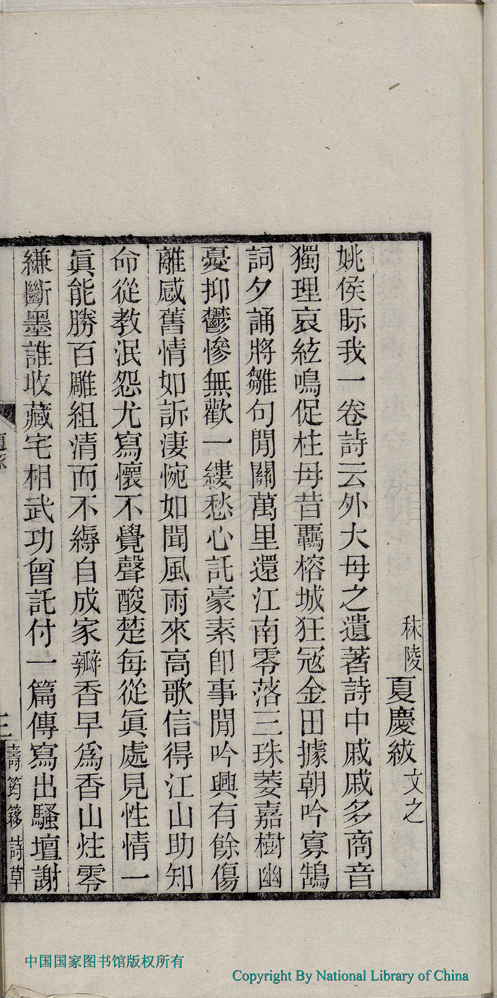 秣陵夏慶紱文之
姚侯眎我一卷詩云外大母之遺著詩中戚戚多商音
獨理哀絃鳴促柱母昔羈榕城狂冦金田據朝吟寡鵠
詞夕誦將雛句閒關萬里還江南零落三珠菱嘉樹幽
憂抑鬱慘無歡一縷愁心託豪素卽事閒吟興有餘傷
離感舊情如訴淒惋如聞風雨來高歌信得江山助知
命從教泯怨尤寫懷不覺聲酸楚每從眞處見性情一
眞能勝百雕組清而不縟自成家瓣香早爲香山炷零
縑斷墨誰收藏宅相武功曾託付一篇傳寫出騷壇謝
題
三
壽筠簃詩草
中国国家图书馆版权所有
Copyright By National Library of China